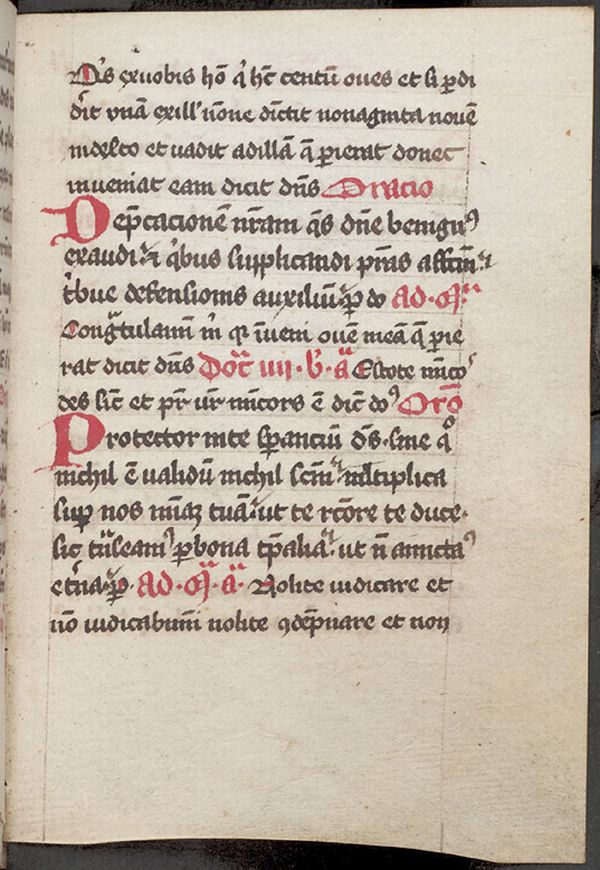 Q's ex uobis hō q̄ hȝ centum oues et si pdi
d'it vnā ex ill' nōne dīctit nonaginta nouē
in de'to et uadit ad illā q̄ pierat donec
inueniat eam dicit dn̄s Oracio
Dep̄cacionē nr̄am q̄s dn̄e benign9
exaudi et q'bus supplicandi p̄tas affcm̄
t'bue defensionis auxiliū p do ad m̄
Congͣtulamī m q inueni ouē meā q̄ pie
rat dicit dn̄s Doc̄ iiii b' a Estote mi'co
des sic̄ et pr̄ ur̄ mi'cors ē dic̄ do9 Orō
Protector in te spanciū ds̄ sine q°
nichil ē ualidū nichil sc̄m multiplica
sup nos miā tuā ut te rc̄ore te duce
sic tͣnseam9 p bona tp̄alia ut n̄ amicta9
et'na p ad m̄ a Nolite iudicare et
nō iudicabimī nolite ɔdep̄nare et non